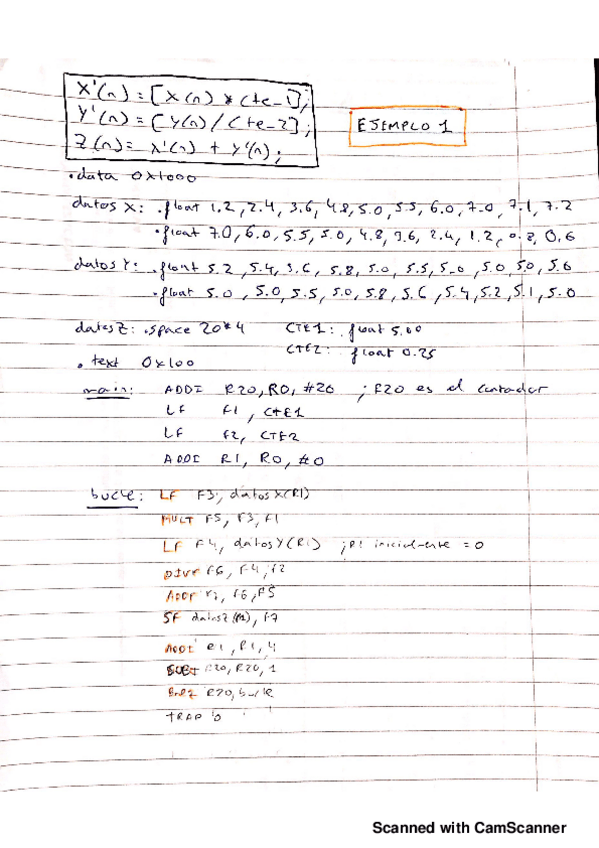 X'(n) = [X(n) * Cte_1];
Y'(n) = [Y(n) / Cte_2];
Z(n) = X'(n) + Y'(n);
EJEMPLO 1
.data 0x1000
datos X: .float 1.2, 2.4, 3.6, 4.8, 5.0, 5.5, 6.0, 7.0, 7.1, 7.2
.float 7.0, 6.0, 5.5, 5.0, 4.8, 3.6, 2.4, 1.2, 0.8, 0.6
datos Y: .float 5.2, 5.4, 3.6, 5.8, 5.0, 5.5, 5.0, 5.0, 5.0, 5.6
.float 5.0, 5.0, 5.5, 5.0, 5.8, 5.6, 5.4, 5.2, 5.1, 5.0
datos Z: .space 20*4 CTE1: .float 5.00
CTE2: .float 0.25
.text 0x100
main: ADDI R20, R0, #20 ; R20 es el contador
LF F1, CTE1
LF F2, CTE2
ADDI R1, R0, #0
bucle: LF F3, datosX(R1)
MULT F5, F3, F1
LF F4, datosY(R1) ; R1 inicialmente = 0
DIVF F6, F4, F2
ADDF F7, F6, F5
SF datosZ(R1), F7
ADDI R1, R1, 4
SUBI R20, R20, 1
BNEZ R20, bucle
TRAP 0
Scanned with CamScanner